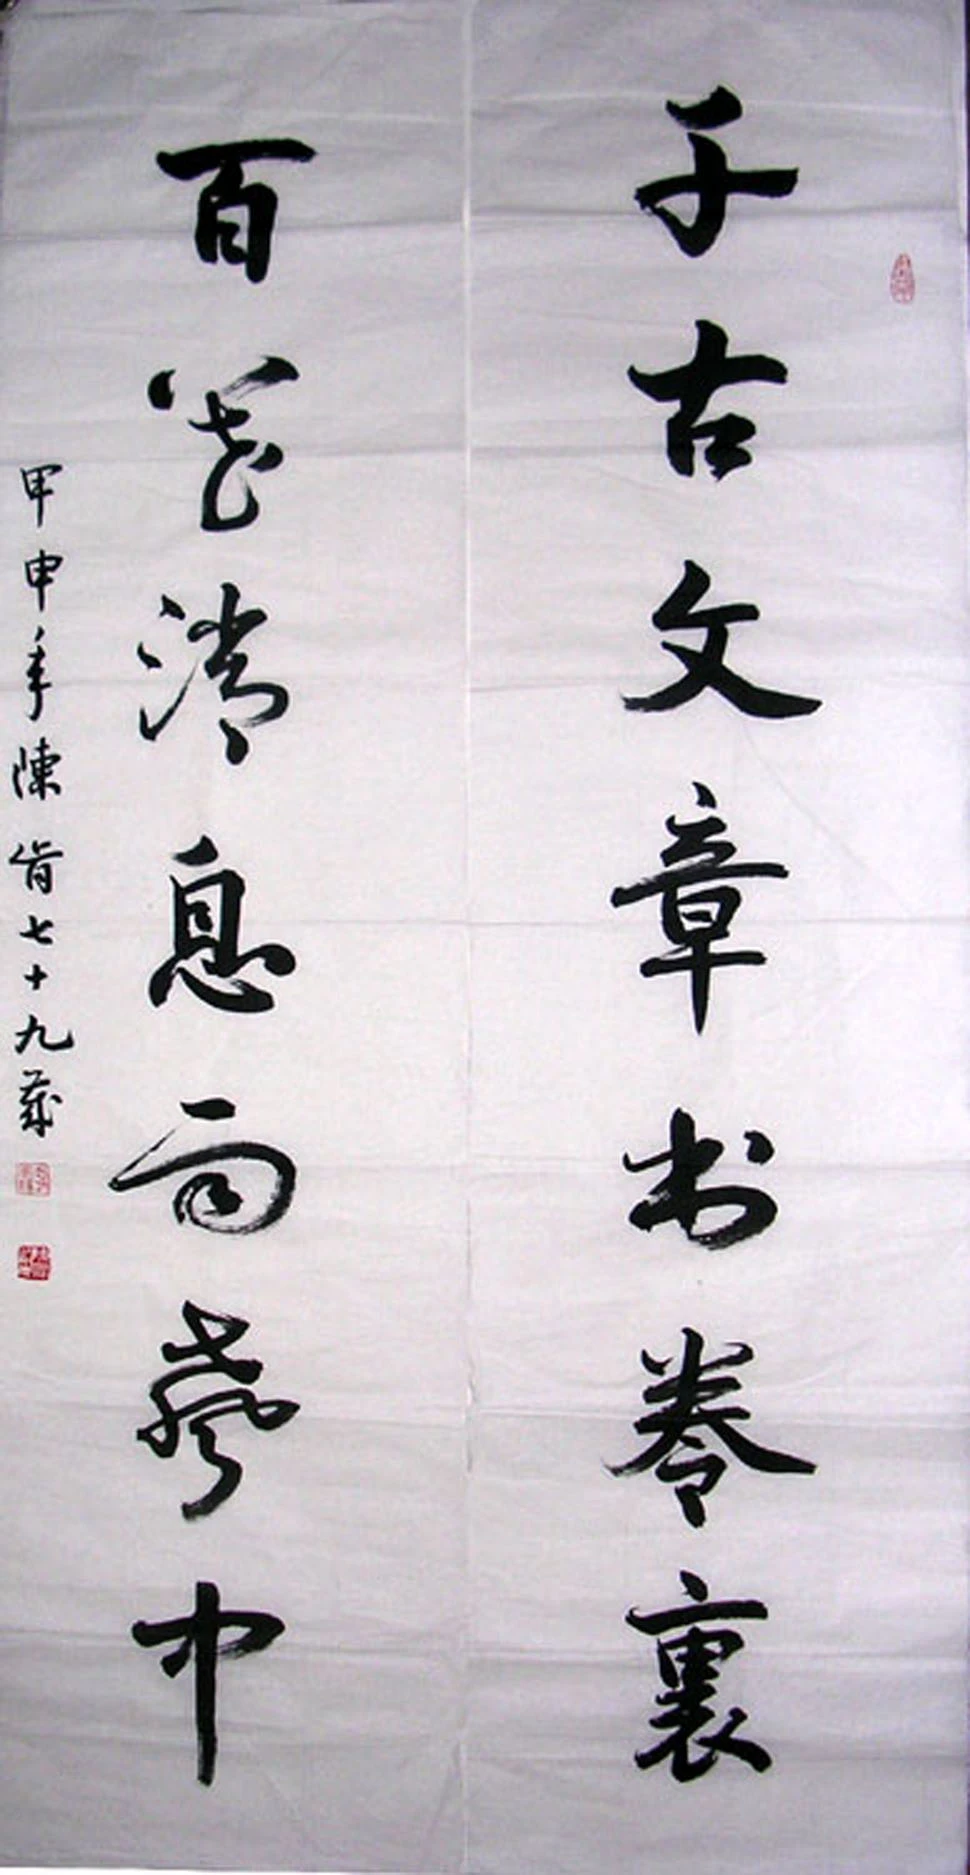 千古文章书卷裏
百花消息雨聲中
甲申年陳肯七十九歲